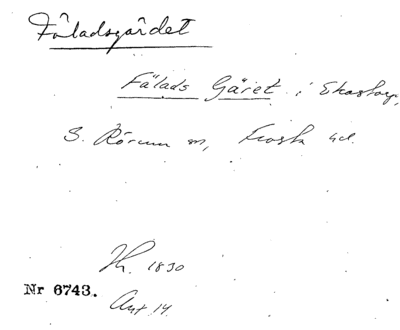 Fäladsgärdet
Fälads Gäret i Ekastorp,
S. Rörum sn, Frosta hd.
Th. 1830
Nr 6743.
Akt 14.